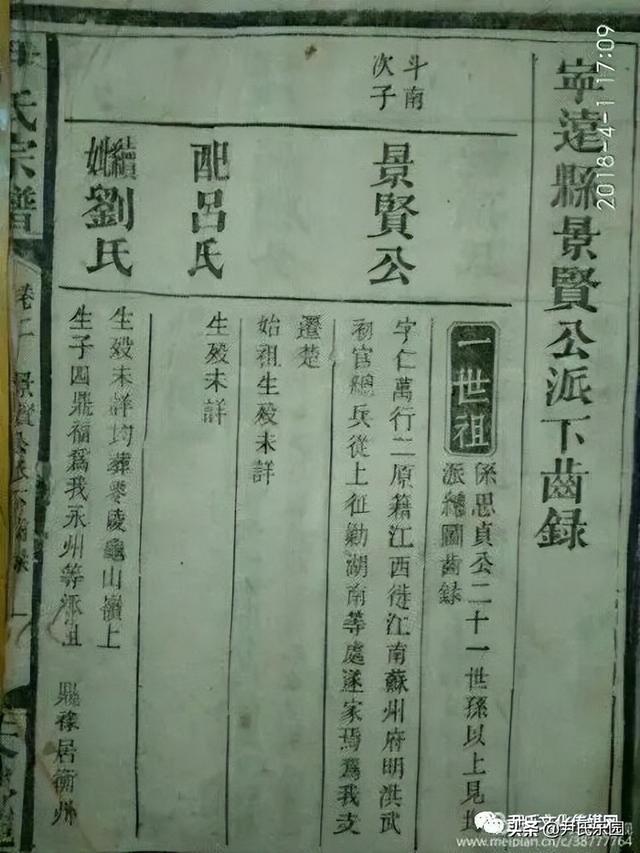 寧遠縣景賢公派下齒録
一世祖
係思貞公二十一世孫以上見
派繪圖齒録
斗南
次子
景賢公
字仁萬行二原籍江西徙江南蘇州府明洪武
初官總兵從上征勦湖南等處遂家焉為我支
遷楚
始祖生殁未詳
配呂氏
生殁未詳
續
妣
劉氏
生殁未詳均葬零陵龜山嶺上
生子四鼎福為我永州等派祖 鼎祿居衡州
氏宗譜
卷二
2018-4-1 17:09
尹氏文化传媒网
头条@尹氏乐园
www.meipian.cn/c/38777764